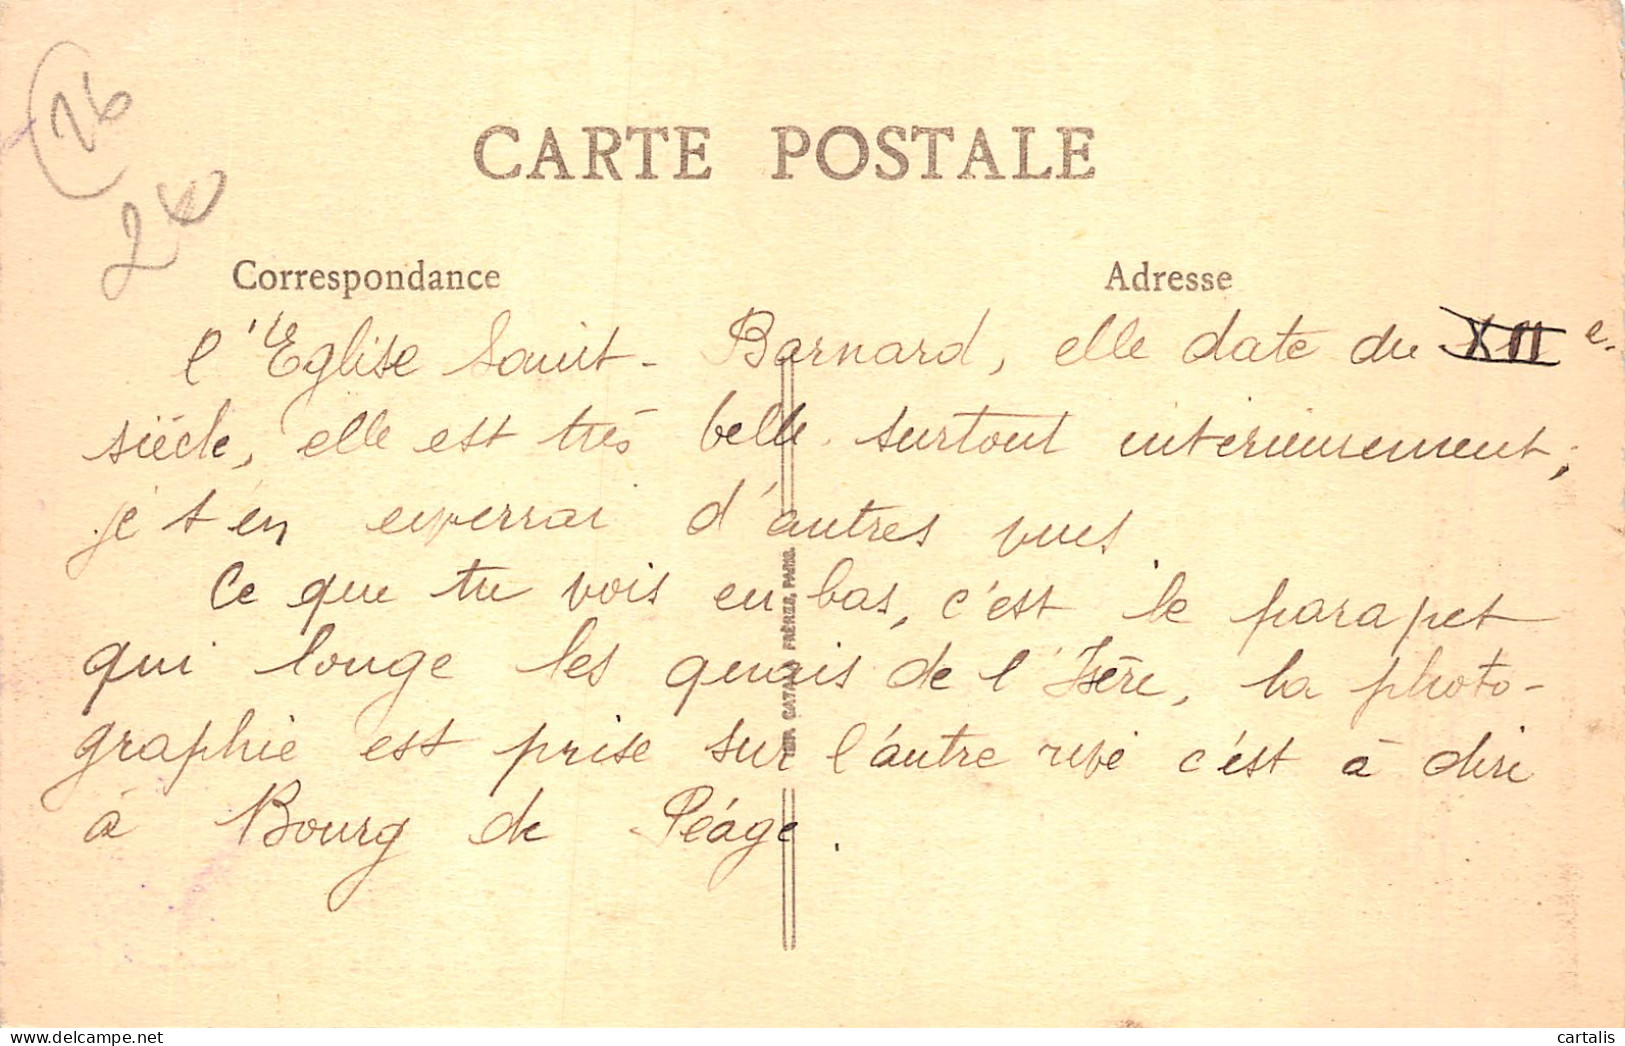 26
20
CARTE POSTALE
Correspondance
Adresse
l'Eglise Saint-Barnard, elle date du XIIe
siècle, elle est très belle surtout intérieurement,
je t'en enverrai d'autres vues.
Ce que tu vois en bas, c'est le parapet
qui longe les quais de l'Isère, la photo-
graphie est prise sur l'autre rive c'est à dire
à Bourg de Péage.
IMP. CATALA FRÈRES, PARIS.
cartalis